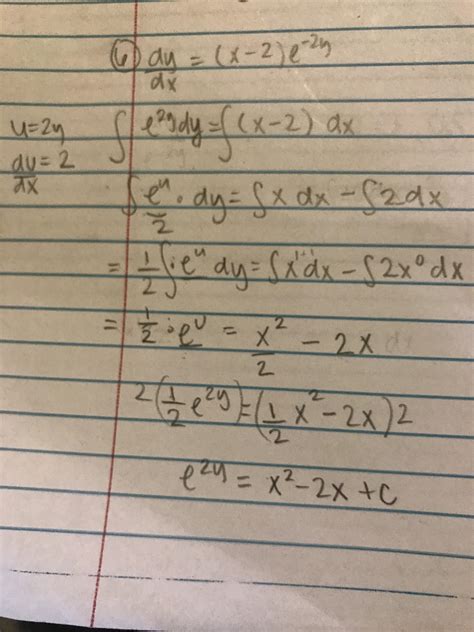 6) dy/dx = (x-2)e^-2y
u=2y ∫ e^2y dy = ∫(x-2) dx
du/dx = 2
∫ e^u/2 · dy = ∫x dx - ∫2dx
= 1/2 ∫ · e^u dy = ∫x^1+1 dx - ∫2x^0 dx
= 1/2 · e^u = x^2/2 - 2x dx
2(1/2 e^2y) = (1/2 x^2 - 2x)2
e^2y = x^2 - 2x + c